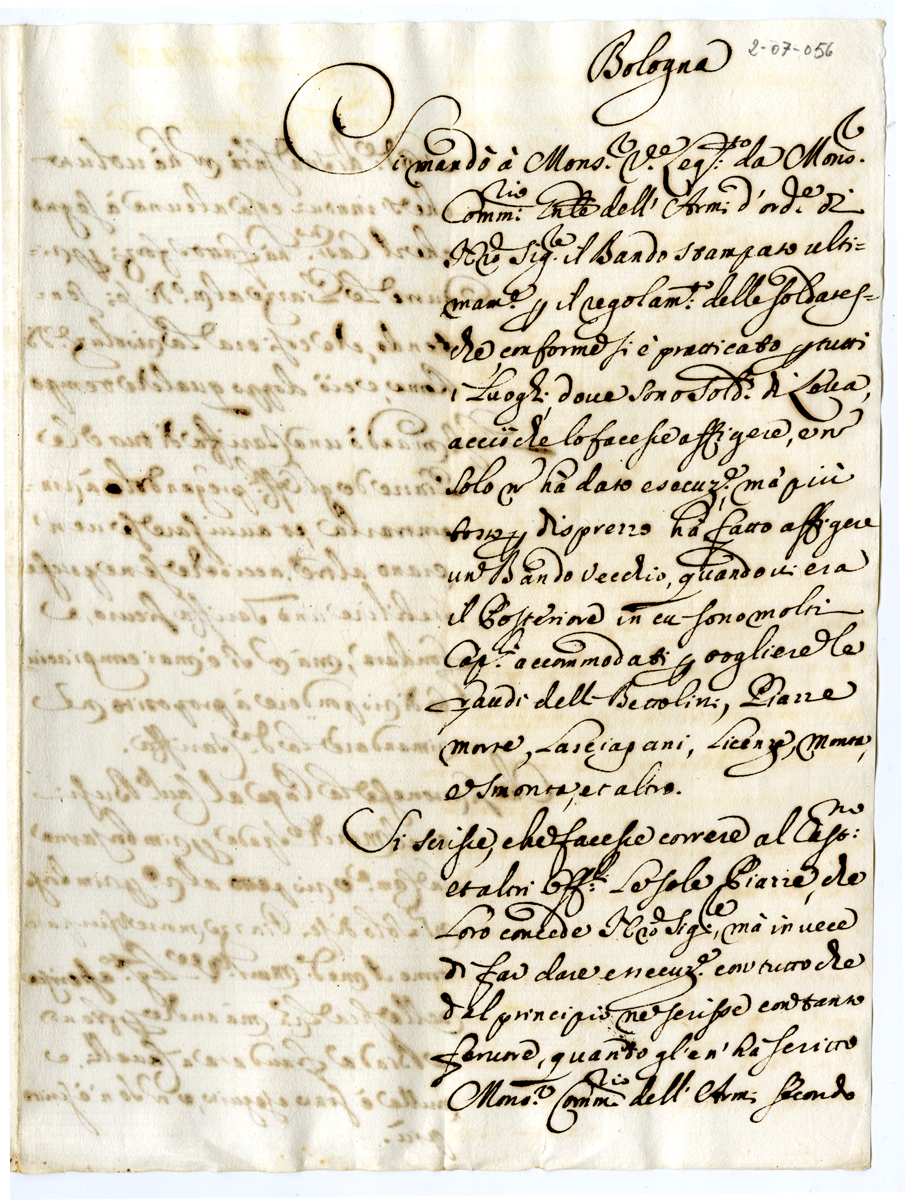 2-07-056
Bologna
Si mandò à Mons.r V.e Leg.to da Mons.r
Comm.rio dell' Arm.i d'ord.e di
N.ro Sig.re il Bando stampato ulti=
mam.e p il regolam.to delle soldates=
che, conforme si è pratticato p tutti
i Luoghi, dove sono Sold.i di Leva,
acciò che lo facesse affigere, e nõ
solo nõ hà dato esecuz.e, mà più
tosto p disprezzo hà fatto affigere
un Bando vecchio, quando vi era
il Posteriore in cui sono molti
Cap.li accommodati p togliere le
fraudi dell Bettolini, Piazze
morte, Lasciapani, Licenze, Monta,
e Smonta, et altro.
Si scrisse, che facesse correre al Cast.no
et altri Off.li Le sole Piazze, che
Loro concede N.ro Sig.re, mà in vece
di far dare essecuz.e con tutto che
dal principio ne scrisse con tanto
fervore, quanto gl'en' hà scritto
Mons.r Comm.rio dell' Arm.i secondo